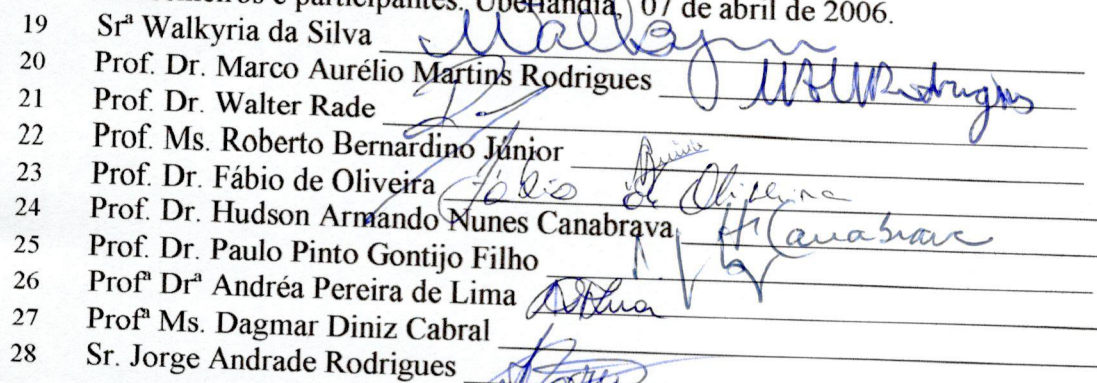 e participantes. Uberlândia, 07 de abril de 2006.
19 Srª Walkyria da Silva Walkyria
20 Prof. Dr. Marco Aurélio Martins Rodrigues MAMRodrigues
21 Prof. Dr. Walter Rade
22 Prof. Ms. Roberto Bernardino Júnior Junior
23 Prof. Dr. Fábio de Oliveira Fábio de Oliveira
24 Prof. Dr. Hudson Armando Nunes Canabrava HCanabrava
25 Prof. Dr. Paulo Pinto Gontijo Filho
26 Profª Drª Andréa Pereira de Lima
27 Profª Ms. Dagmar Diniz Cabral
28 Sr. Jorge Andrade Rodrigues